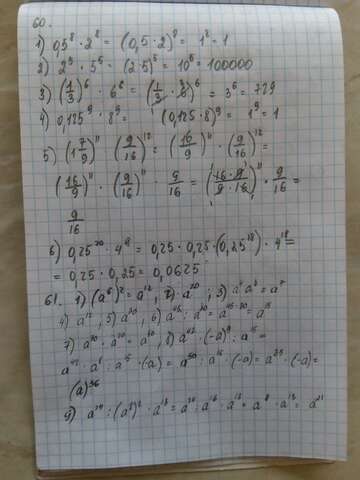 60.
1) 0,5⁸ · 2⁸ = (0,5 · 2)⁸ = 1⁸ = 1
2) 2⁵ · 5⁵ = (2 · 5)⁵ = 10⁵ = 100000
3) (1/3)⁶ · 6⁶ = (1/3 · 6)⁶ = 3⁶ = 729
4) 0,125⁹ · 8⁹ = (0,125 · 8)⁹ = 1⁹ = 1
5) (1 7/9)¹¹ (9/16)¹² = (16/9)¹¹ · (9/16)¹² =
(16/9)¹¹ · (9/16)¹¹ · 9/16 = (16 · 9/9 · 16)¹¹ · 9/16 =
9/16
6) 0,25²⁰ · 4¹⁸ = 0,25 · 0,25 · (0,25¹⁸) · 4¹⁸ =
= 0,25 · 0,25 = 0,0625
61. 1) (a⁶)² = a¹², 2) a²⁰; 3) a⁷
4) a¹², 5) a²⁰, 6) a⁴⁵ : a³⁰ = a⁴⁵⁻³⁰ = a¹⁵
7) a³⁰ · a¹⁰ = a⁴⁰, 8) a⁴² · (-a)⁹ : a¹⁵ =
a⁴² · a⁸ : a¹⁵ · (-a) = a⁵⁰ : a¹⁵ · (-a) = a³⁵ · (-a) =
(a)³⁶
9) a²⁴ : (a⁸)² · a¹³ = a²⁴ : a¹⁶ · a¹³ = a⁸ · a¹³ = a²¹